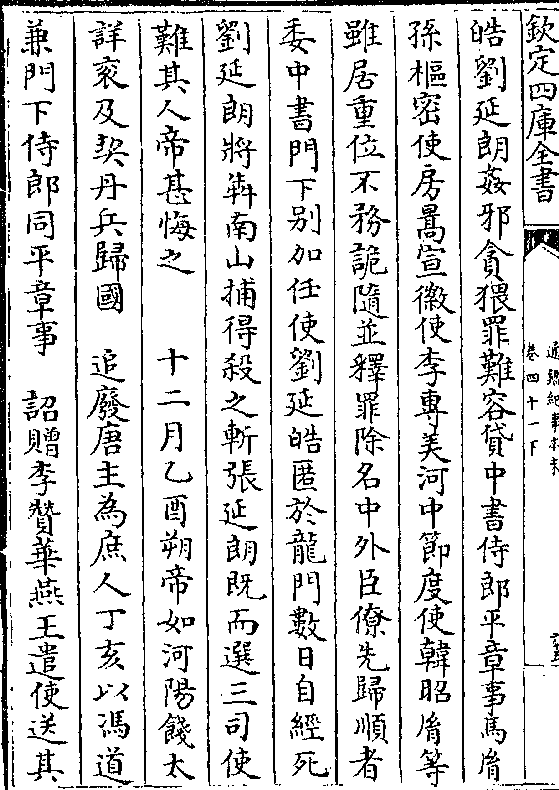 欽定四庫全書
通鑑紀事本末
卷四十一下
皓劉延朗姦邪貪猥罪難容貸中書侍郎平章事馬胤
孫樞密使房暠宣徽使李專美河中節度使韓昭胤等
雖居重位不務詭隨並釋罪除名中外臣僚先歸順者
委中書門下别加任使劉延皓匿於龍門數日自經死
劉延朗將奔南山捕得殺之斬張延朗既而選三司使
難其人帝甚悔之　十二月乙酉朔帝如河陽餞太
詳衮及契丹兵歸國　追廢唐主為庶人丁亥以馮道
兼門下侍郎同平章事　詔贈李贊華燕王遣使送其